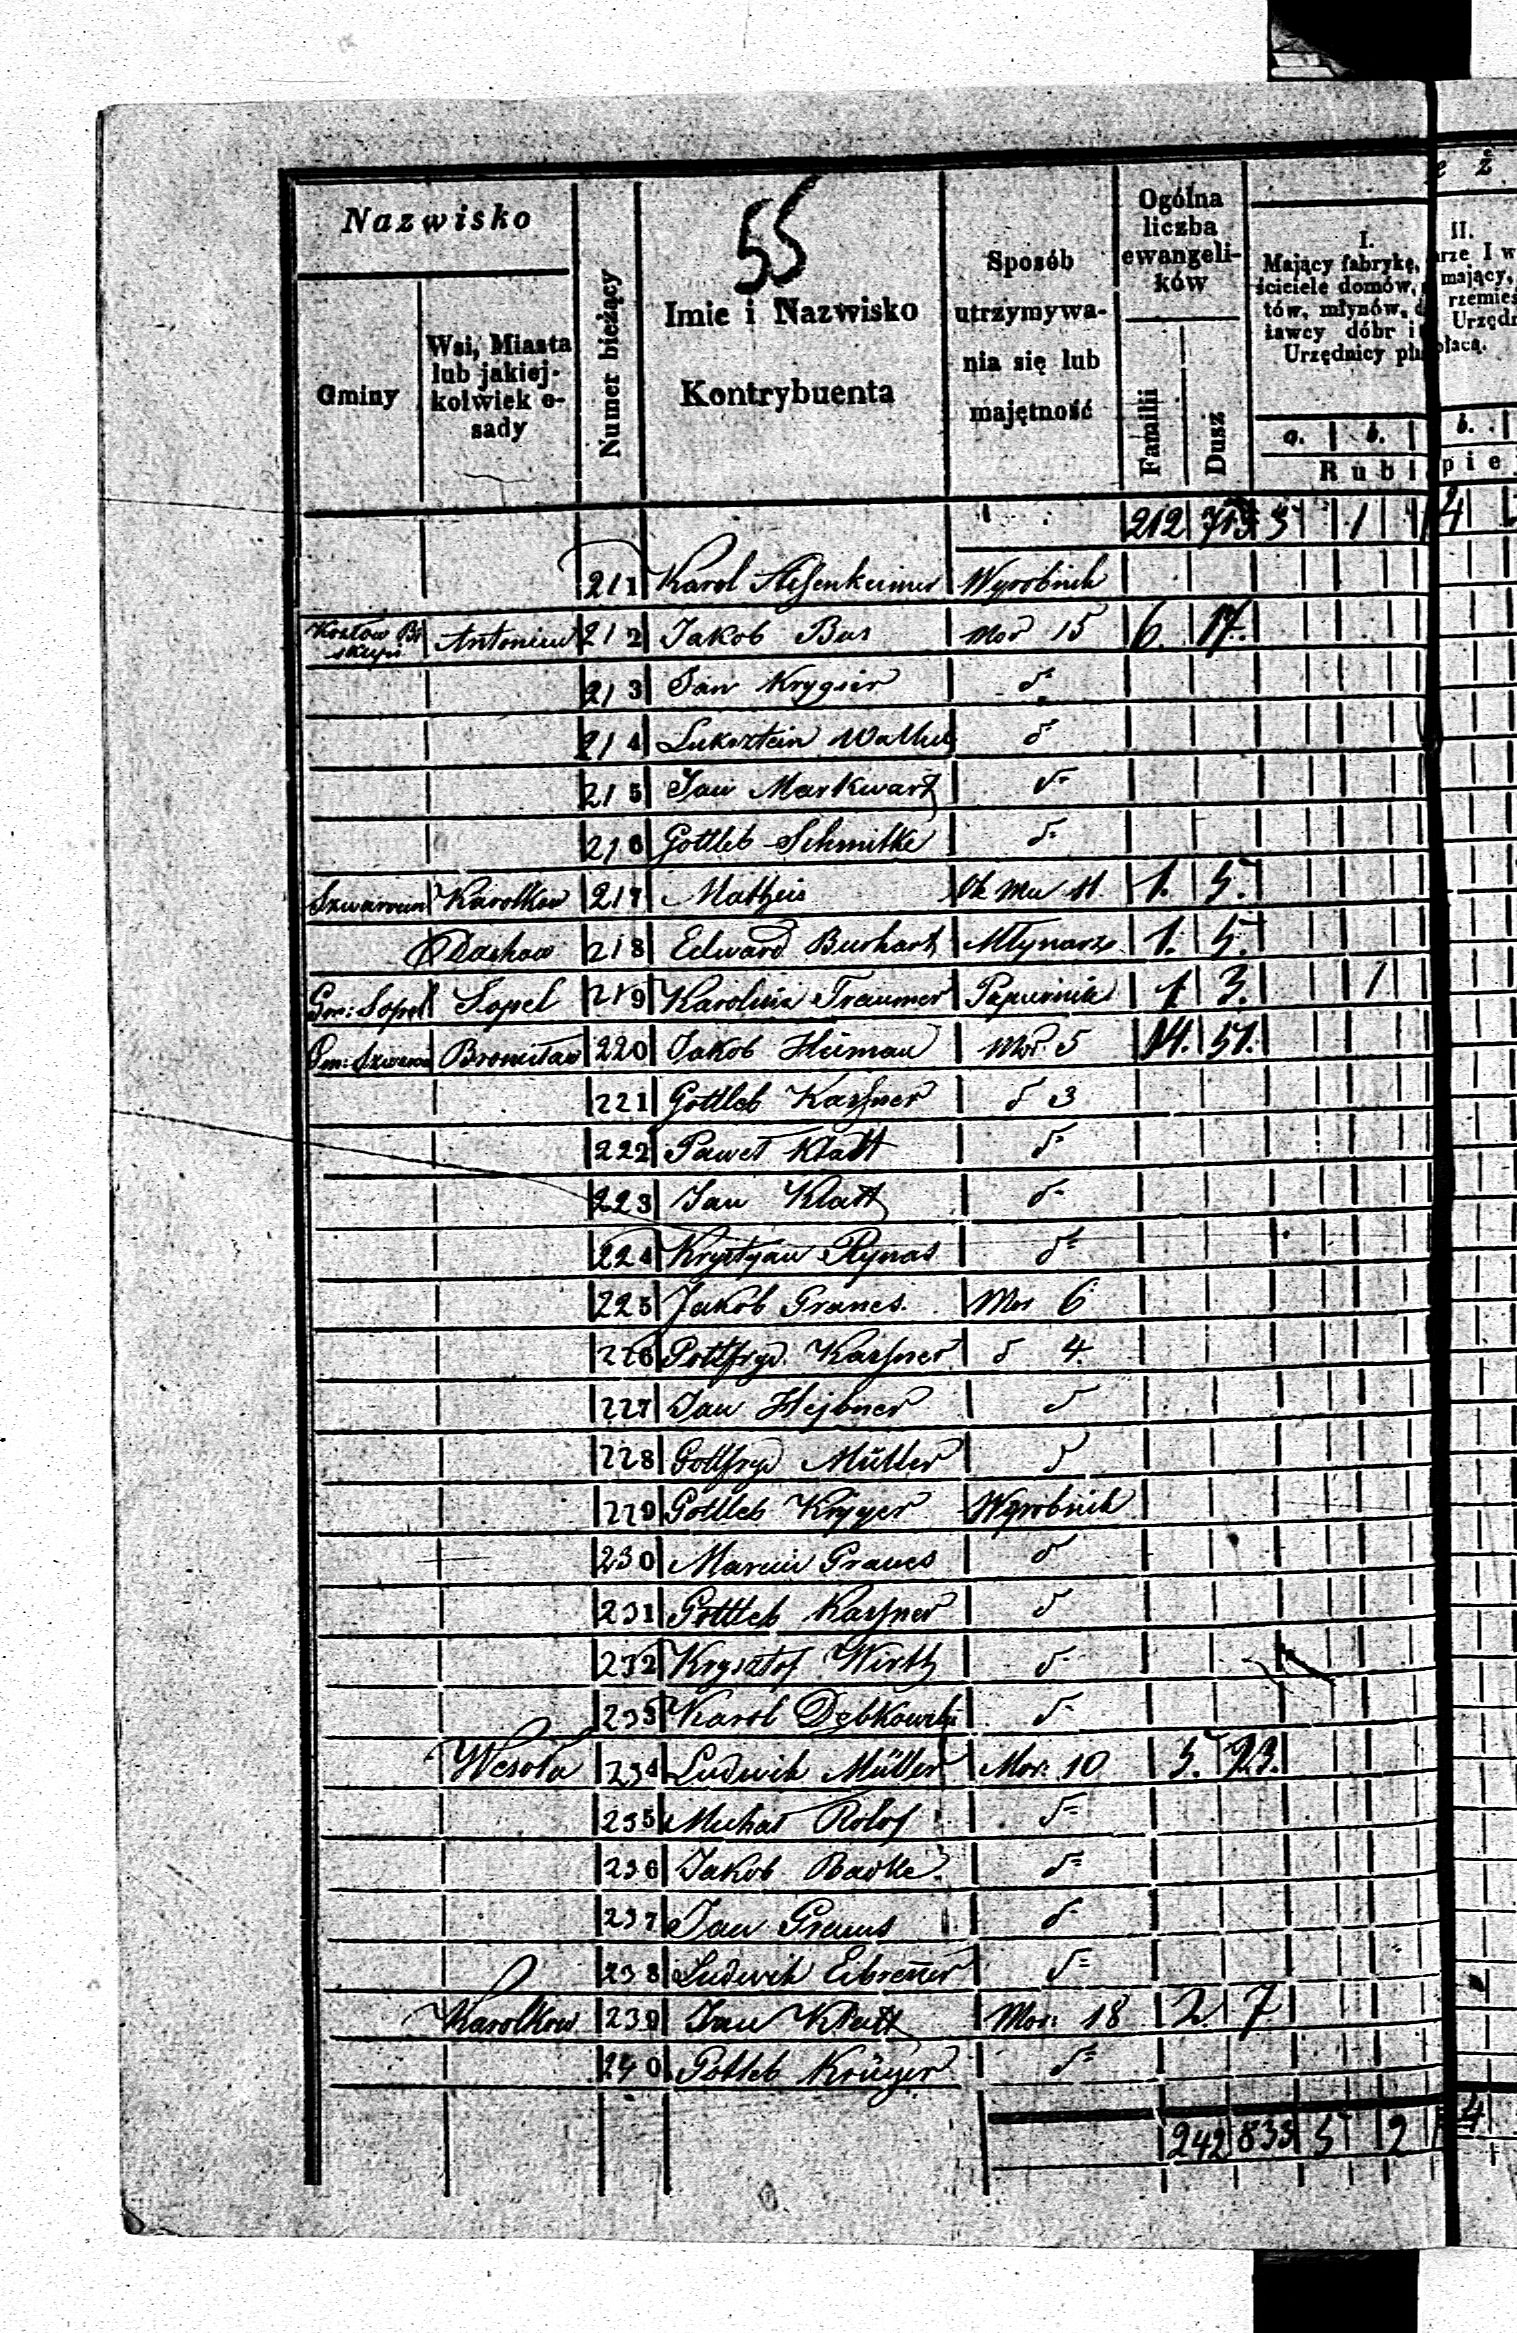 55
Nazwisko
Gminy
Wsi, Miasta
lub jakiej-
kolwiek o-
sady
Numer bieżący
Imie i Nazwisko
Kontrybuenta
Sposób
utrzymywa-
nia się lub
majętność
Ogólna
liczba
ewangeli-
ków
Familii
Dusz
I.
Mający fabrykę,
ściciele domów,
tów, młynów,
ławcy dóbr i
Urzędnicy pła
a. b.
Rubl
II.
mający,
rzemieś
Urzędn
płacą.
b.
pie
212 713 5 1 4
211 Karol Wyrobnik
Antoniew 212 Jakob Bus Mor 15 6. 17.
213 Jan Krygier d
214 d
215 Jan Markwart d
216 Gottleb Schmitke d
Karolkow 217 Matheis 1. 5.
218 Edward Burhart Młynarz 1. 5.
Gm: Sopel Sopel 219 Karolina Traumer Papiernia 1 3. 1
Bronisław 220 Jakob Heiman Mor. 5 14. 51.
221 Gottleb Kassner d 3
222 Paweł Klatt d
223 Jan Klatt d
224 Krystyan Rynas d
225 Jakob Granes Mor 6
226 Gottfryd Kassner d 4.
227 Jan Hejbner d
228 Gottfryd Müller d
229 Gottleb Kryger Wyrobnik
230 Marcin Granes d
231 Gottleb Kassner d
232 Krysztof Wirth d
233 Karol d
Wesoła 234 Ludwik Müller Mor: 10 5. 23.
235 Michał Rolof d
236 Jakob Radke d
237 Jan d
238 Ludwik d
Karolkow 239 Jan Klatt Mor: 18 2. 7
240 Gotleb Krüger d
242 833 5 2 4